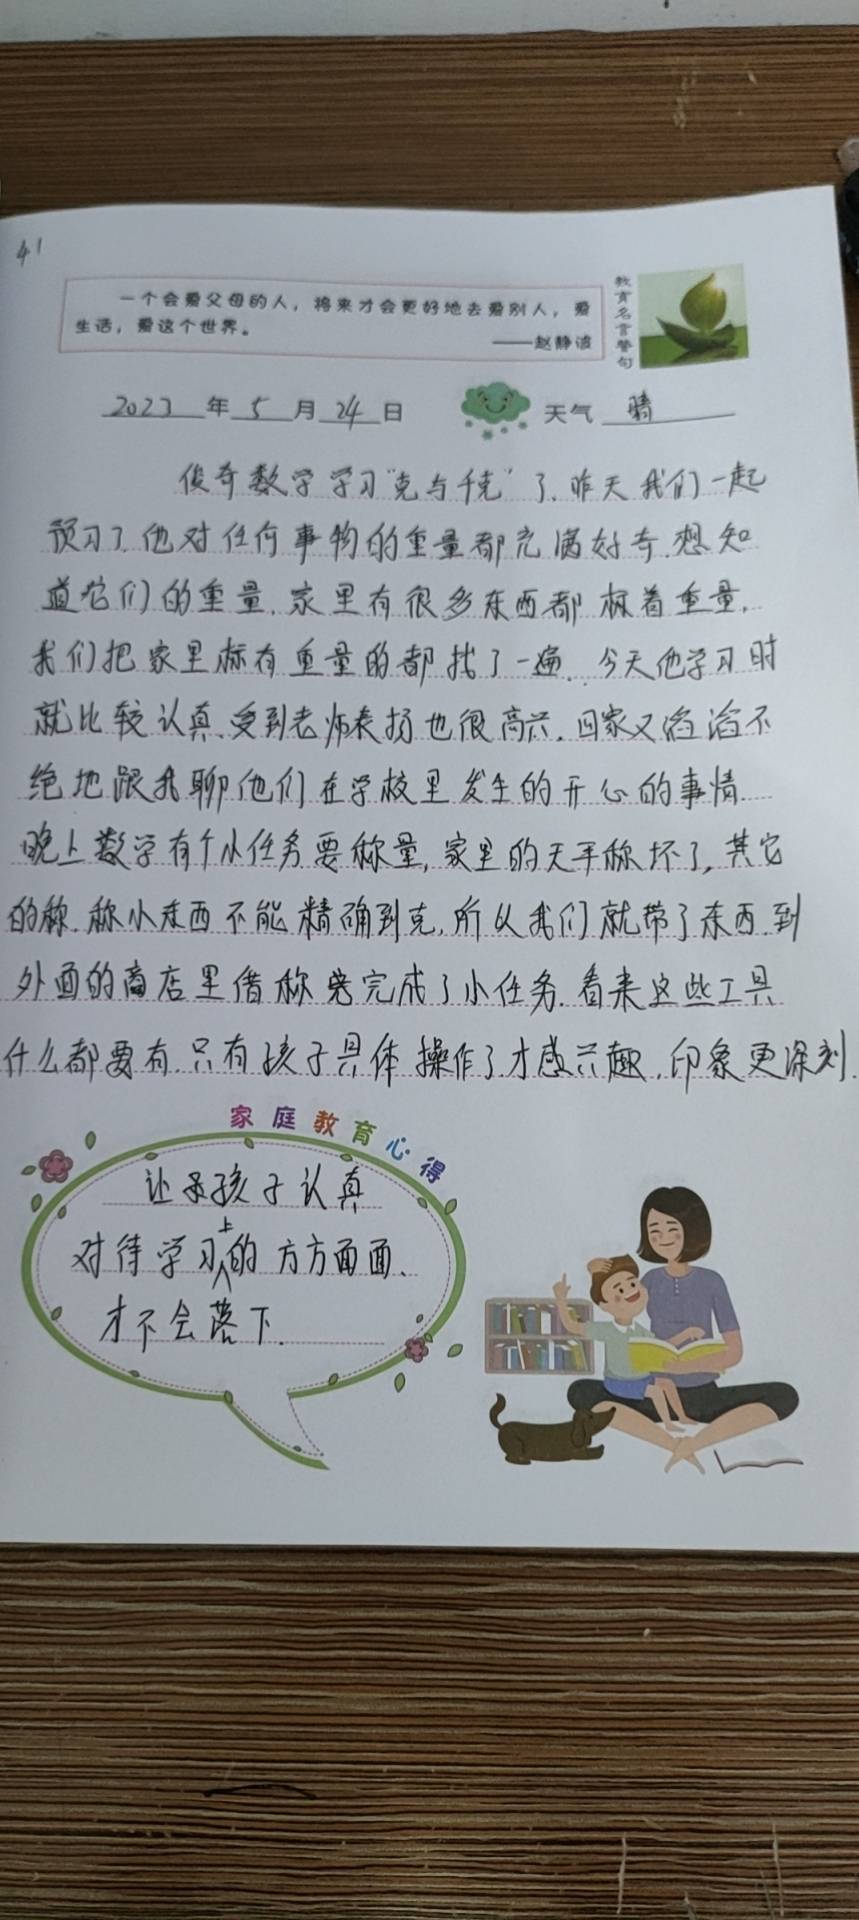 41
一个会爱父母的人，将来才会更好地去爱别人，爱
生活，爱这个世界。
——赵静洁
教育名言警句
2023年5月24日 天气 晴
俊奇数学学习“克与千克”了.昨天我们一起
预习了.他对任何事物的重量都充满好奇.想知
道它们的重量.家里有很多东西都标着重量.
我们把家里标有重量的都找了一遍.今天他学习时
就比较认真、受到老师表扬也很高兴.回家又滔滔不
绝地跟我聊他们在学校里发生的开心的事情
晚上数学有个小任务要称量,家里的天平称坏了,其它
的称.称小东西不能精确到克,所以我们就带了东西到
外面的商店里借称 完成了小任务.看来这些工具
什么都要有.只有孩子具体操作了才感兴趣,印象更深刻.
家庭教育心得
让 孩子认真
对待学习上的方方面面、
才不会落下.